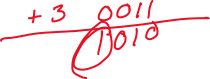 + 3 0011
1010